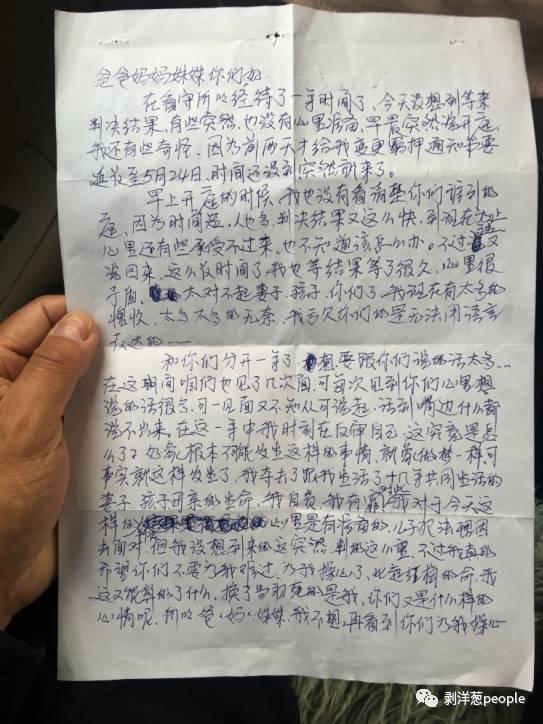 爸爸妈妈妹妹你们好
在看守所已经待了一年时间了，今天没想到等来
判决结果，有些突然，也没有心里准备，早晨突然说开庭
我还有些奇怪，因为前两天才给我变更羁押通知书要
延长至5月24日，时间还没到突然就来了。
早上开庭的时候，我也没有看清楚你们谁到的
庭，因为时间短，人也多，判决结果又这么快，到现在为止
心里还有些承受不过来，也不知道该怎么办。不过话又
说回来，这么长时间了，我也等结果等了很久，心里很
矛盾，太对不起妻子、孩子、你们了，我现在有太多的
悔恨，太多太多的无奈，我亏欠你们的是无法用语言
表达的……
和你们分开一年了，想要跟你们说的话太多…
在这期间咱们也见了几次面，可每次见到你们心里想
说的话很多，可一见面又不知从何说起，话到嘴边什么都
说不出来，在这一年中我时刻在反审自己，这究竟是怎
么了？如命根本不能发生这样的事情，就象做梦一样可
事实就这样发生了，我夺去了跟我生活了十几年共同生活的
妻子、孩子可亲的生命，我自责，我有罪，我对于今天这
样的心里是有准备的，儿子无法理因
去面对，但我没想到来的这突然，判的这么重，不过我真的
希望你们不要为我难过，为我操心了，比起结梅的命，我
这又能算的了什么，换了当初死的是我，你们又是什么样的
心情呢，所以爸、妈、妹妹，我不想再看到你们为我操心
剥洋葱people